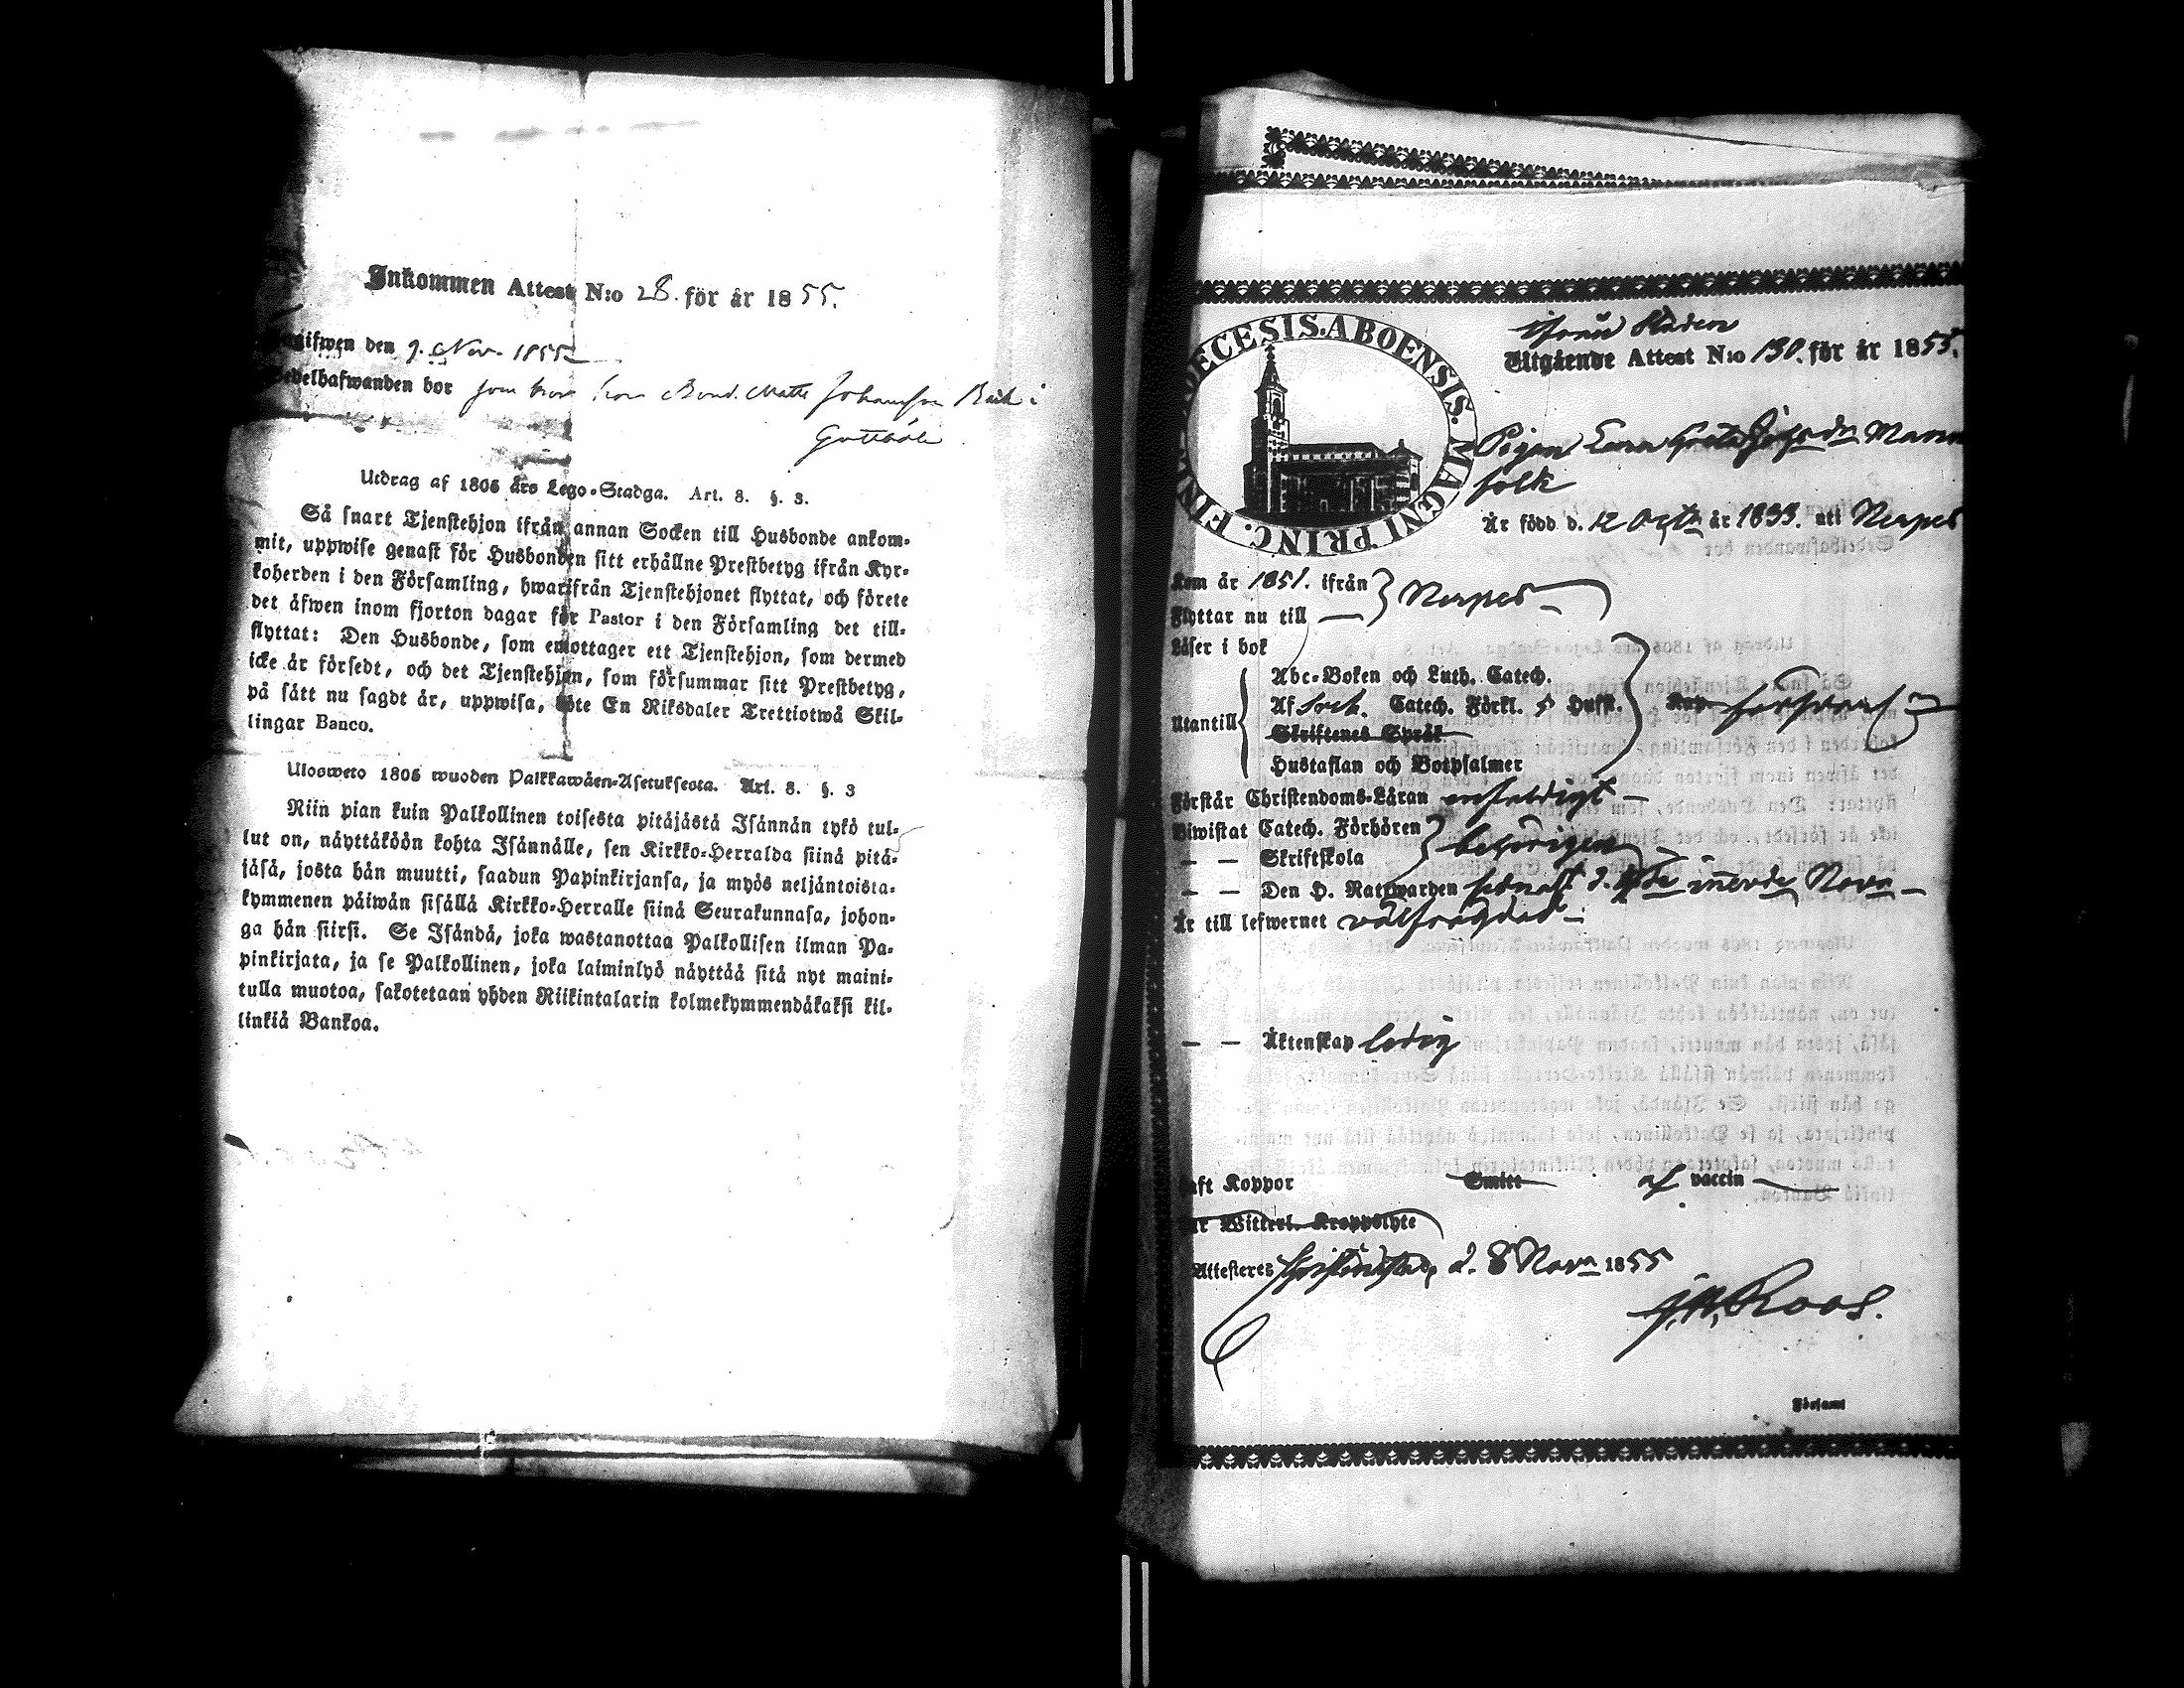 Inkommen Attest N:o 28. för år 1855.
gifwen den 9. Nov. 1855
edelhafwanden bor som hos Bond. Matts Johansson i
Gottböle
Utdrag af 1805 års Lego-Stadga. Art. 8. §. 3.
Så snart Tjenstehjon ifrån annan Socken till Husbonde ankom-
mit, uppwise genast för Husbonden sitt erhållne Prestbetyg ifrån Kyr-
koherden i den Församling, hwarifrån Tjenstehjonet flyttat, och förete
det äfwen inom fjorton dagar för Pastor i den Församling det till-
flyttat: Den Husbonde, som emottager ett Tjenstehjon, som dermed
icke är försedt, och det Tjenstehjon, som försummar sitt Prestbetyg,
på sätt nu sagdt är, uppwisa, böte En Riksdaler Trettiotwå Skil-
lingar Banco.
Ulosweto 1805 wuoden Palkkawäen-Asetuksesta. Art. 8. §. 3
Niin pian kuin Palkollinen toisesta pitäjästä Isännän tykö tul-
lut on, näyttäköön kohta Isännälle, sen Kirkko-Herralda siinä pitä-
jäsä, josta hän muutti, saadun Papinkirjansa, ja myös neljäntoista-
kymmenen päiwän sisällä Kirkko-Herralle siinä Seurakunnasa, johon-
ga hän siirsi. Se Isändä, joka wastanottaa Palkollisen ilman Pa-
pinkirjata, ja se Palkollinen, joka laiminlyö näyttää sitä nyt maini-
tulla muotoa, sakotetaan yhden Riikintalarin kolmekymmendäkaksi kil-
linkiä Bankoa.
DECESIS. ABOENSIS. MAGNI PRINC. FIN
ifrån Staden
Utgående Attest N:o 130. för år 1855.
Pigan Greta Johsdr Mann
folk
Är född d. 12 Octr år 1833. uti Nerpes
Kom år 1851. ifrån } Nerpes
Flyttar nu till
Läser i bok
Utantill
Abc-Boken och Luth. Catech.
Af Catech. Förkl. 5 Hufst.
Skriftenes Språk
Hustaflan och Botpsalmer
försvarl
Förstår Christendoms-Läran enfaldigt
Biwistat Catech. Förhören } behörigen
— — Skriftskola
— — Den H. Nattwarden sednast d. Nov
Är till lefwernet välfrägdad
— — Äktenskap ledig
aft Koppor Smitt af vaccin
ar Witterl. Kroppslyte
Attesteres Christinestad, d. 8 Nov 1855
J. N. Roos.
Församl